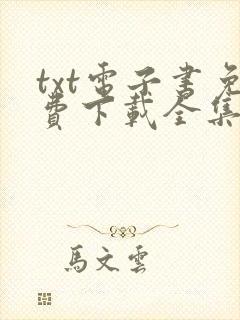 txt電子書免
費下載全集
馬文雲